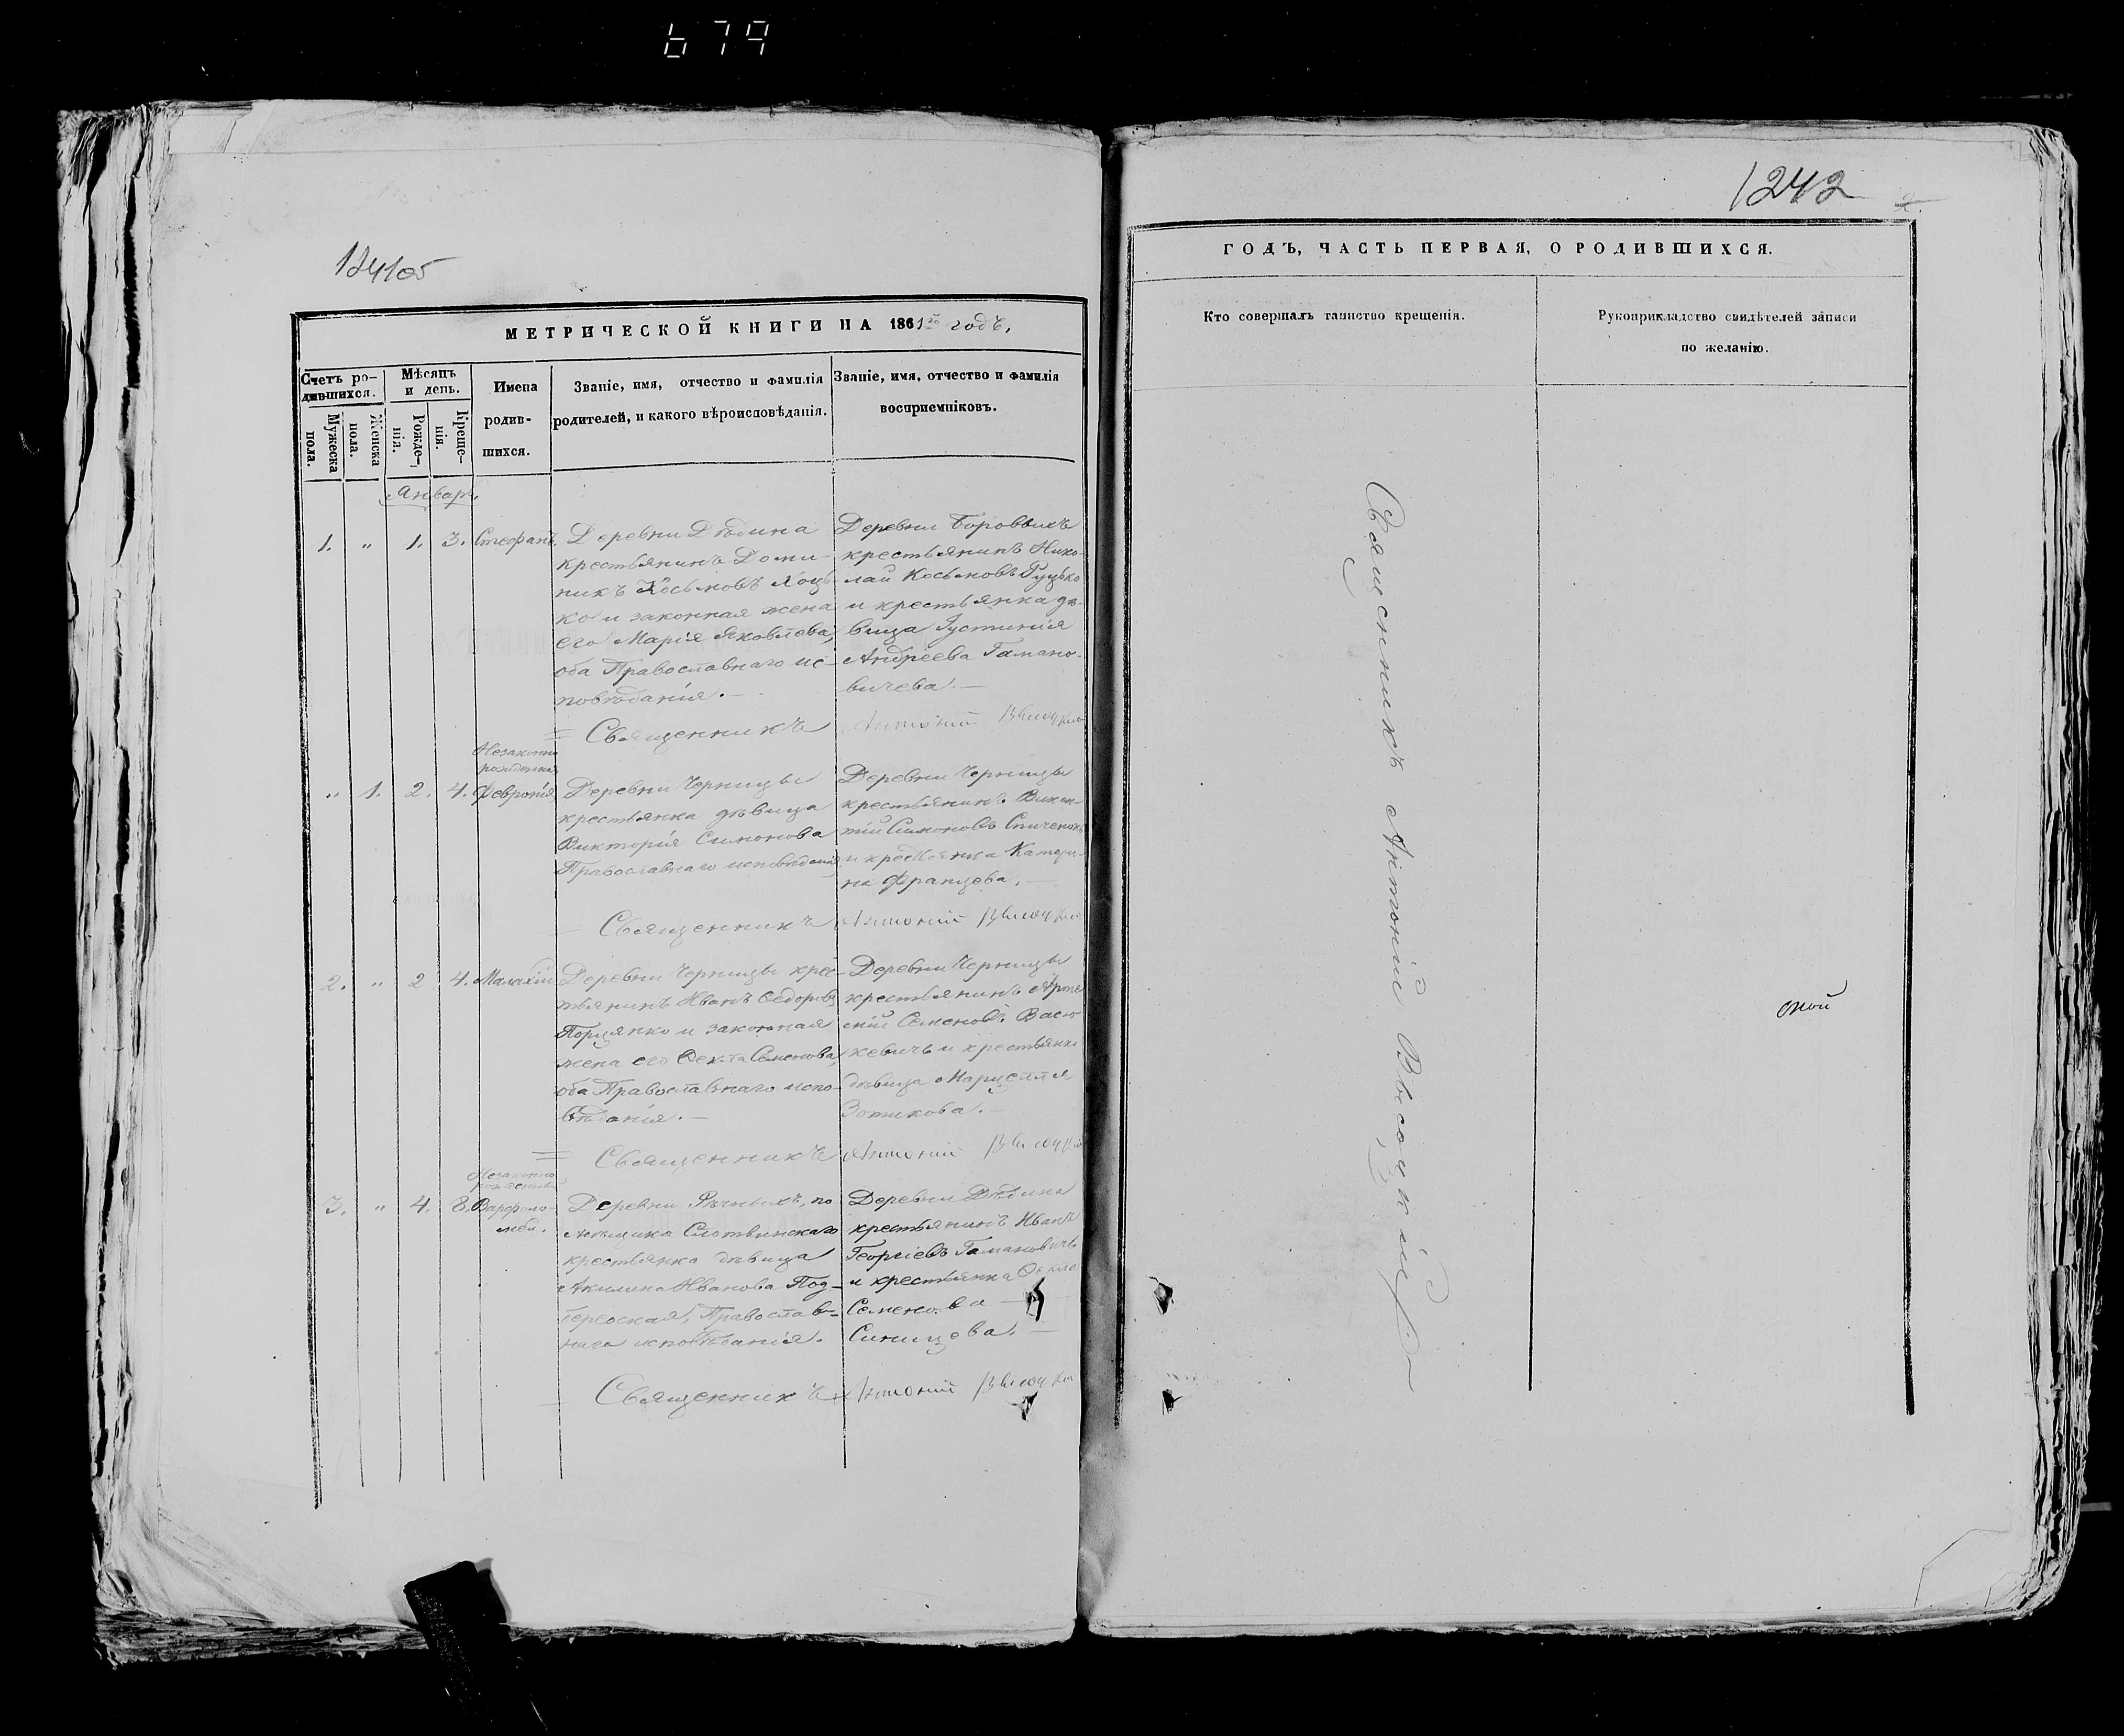 679
1242
124105
МЕТРИЧЕСКОЙ КНИГИ НА 1861го годъ,
Счетъ ро-
дившихся.
Мѣсяцъ
и день.
Имена
родив-
шихся.
Званіе, имя, отчество и фамилія
родителей, и какого вѣроисповѣданія.
Званіе, имя, отчество и фамилія
воспріемниковъ.
Мужеска
пола.
Женска
пола.
Рожде-
нія.
Креще-
нія.
Январь.
1. " 1. 3. Стефанъ.
Деревни Дѣдина
крестьянинъ Доми-
никъ Косьмовъ Хоць-
ко и законная жена
его Марія Яковлева,
оба Православнаго ис-
повѣданія.—
Деревни Боровыхъ
крестьянинъ Нико-
лай Косьмовъ Руцько
и крестьянка дѣ-
вица Густинія
Андреева Гамано-
вичева.—
Священникъ Антоній Высоцкій
Незаконно
рожденная
" 1. 2. 4. Февронія
Деревни Черницы
крестьянка дѣвица
Викторія Симонова
Православнаго исповѣданія
Деревни Черницы
крестьянинъ Викен-
тій Симоновъ Спиченокъ
и крестьянка Катери-
на Францева.—
Священникъ Антоній Высоцкій
2. " 2 4. Малахій
Деревни Черницы крес-
тьянинъ Иванъ Ѳедоровъ
Порцянко и законная
жена его Ѳекла Семенова,
оба Православнаго испо-
вѣданія.—
Деревни Черницы
крестьянинъ Арте-
мій Семеновъ Васю-
кевичъ и крестьянка
дѣвица Марцелля
Зотикова.—
Священникъ Антоній Высоцкій
Незаконно
рожденный
3. " 4. 8. Варѳоло-
мей.
Деревни Рѣчныхъ, по-
мѣщика Слотвинскаго
крестьянка дѣвица
Акилина Иванова Под-
бероская, Православ-
наго исповѣданія.
Деревни Дѣдина
крестьянинъ Иванъ
Георгіевъ Гамановичъ
и крестьянка Ѳекла
Семенова —
Синицева.—
Священникъ Антоній Высоцкій
ГОДЪ, ЧАСТЬ ПЕРВАЯ, О РОДИВШИХСЯ.
Кто совершалъ таинство крещенія.
Рукоприкладство свидѣтелей записи
по желанію.
Священникъ Антоній Высоцкій